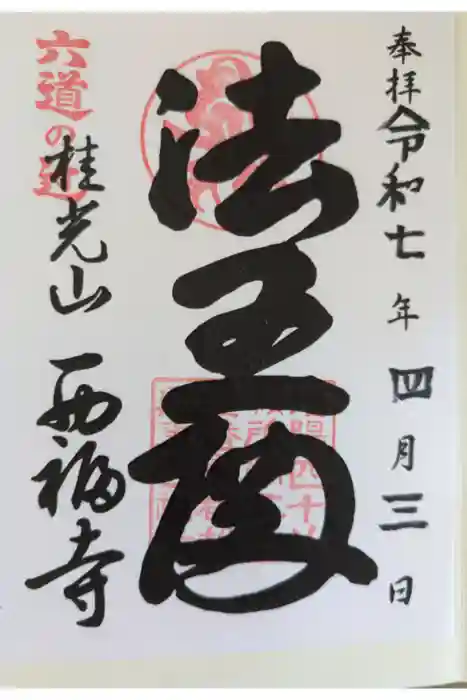 奉拝 令和七年四月三日
法王殿
六道の辻
桂光山 西福寺